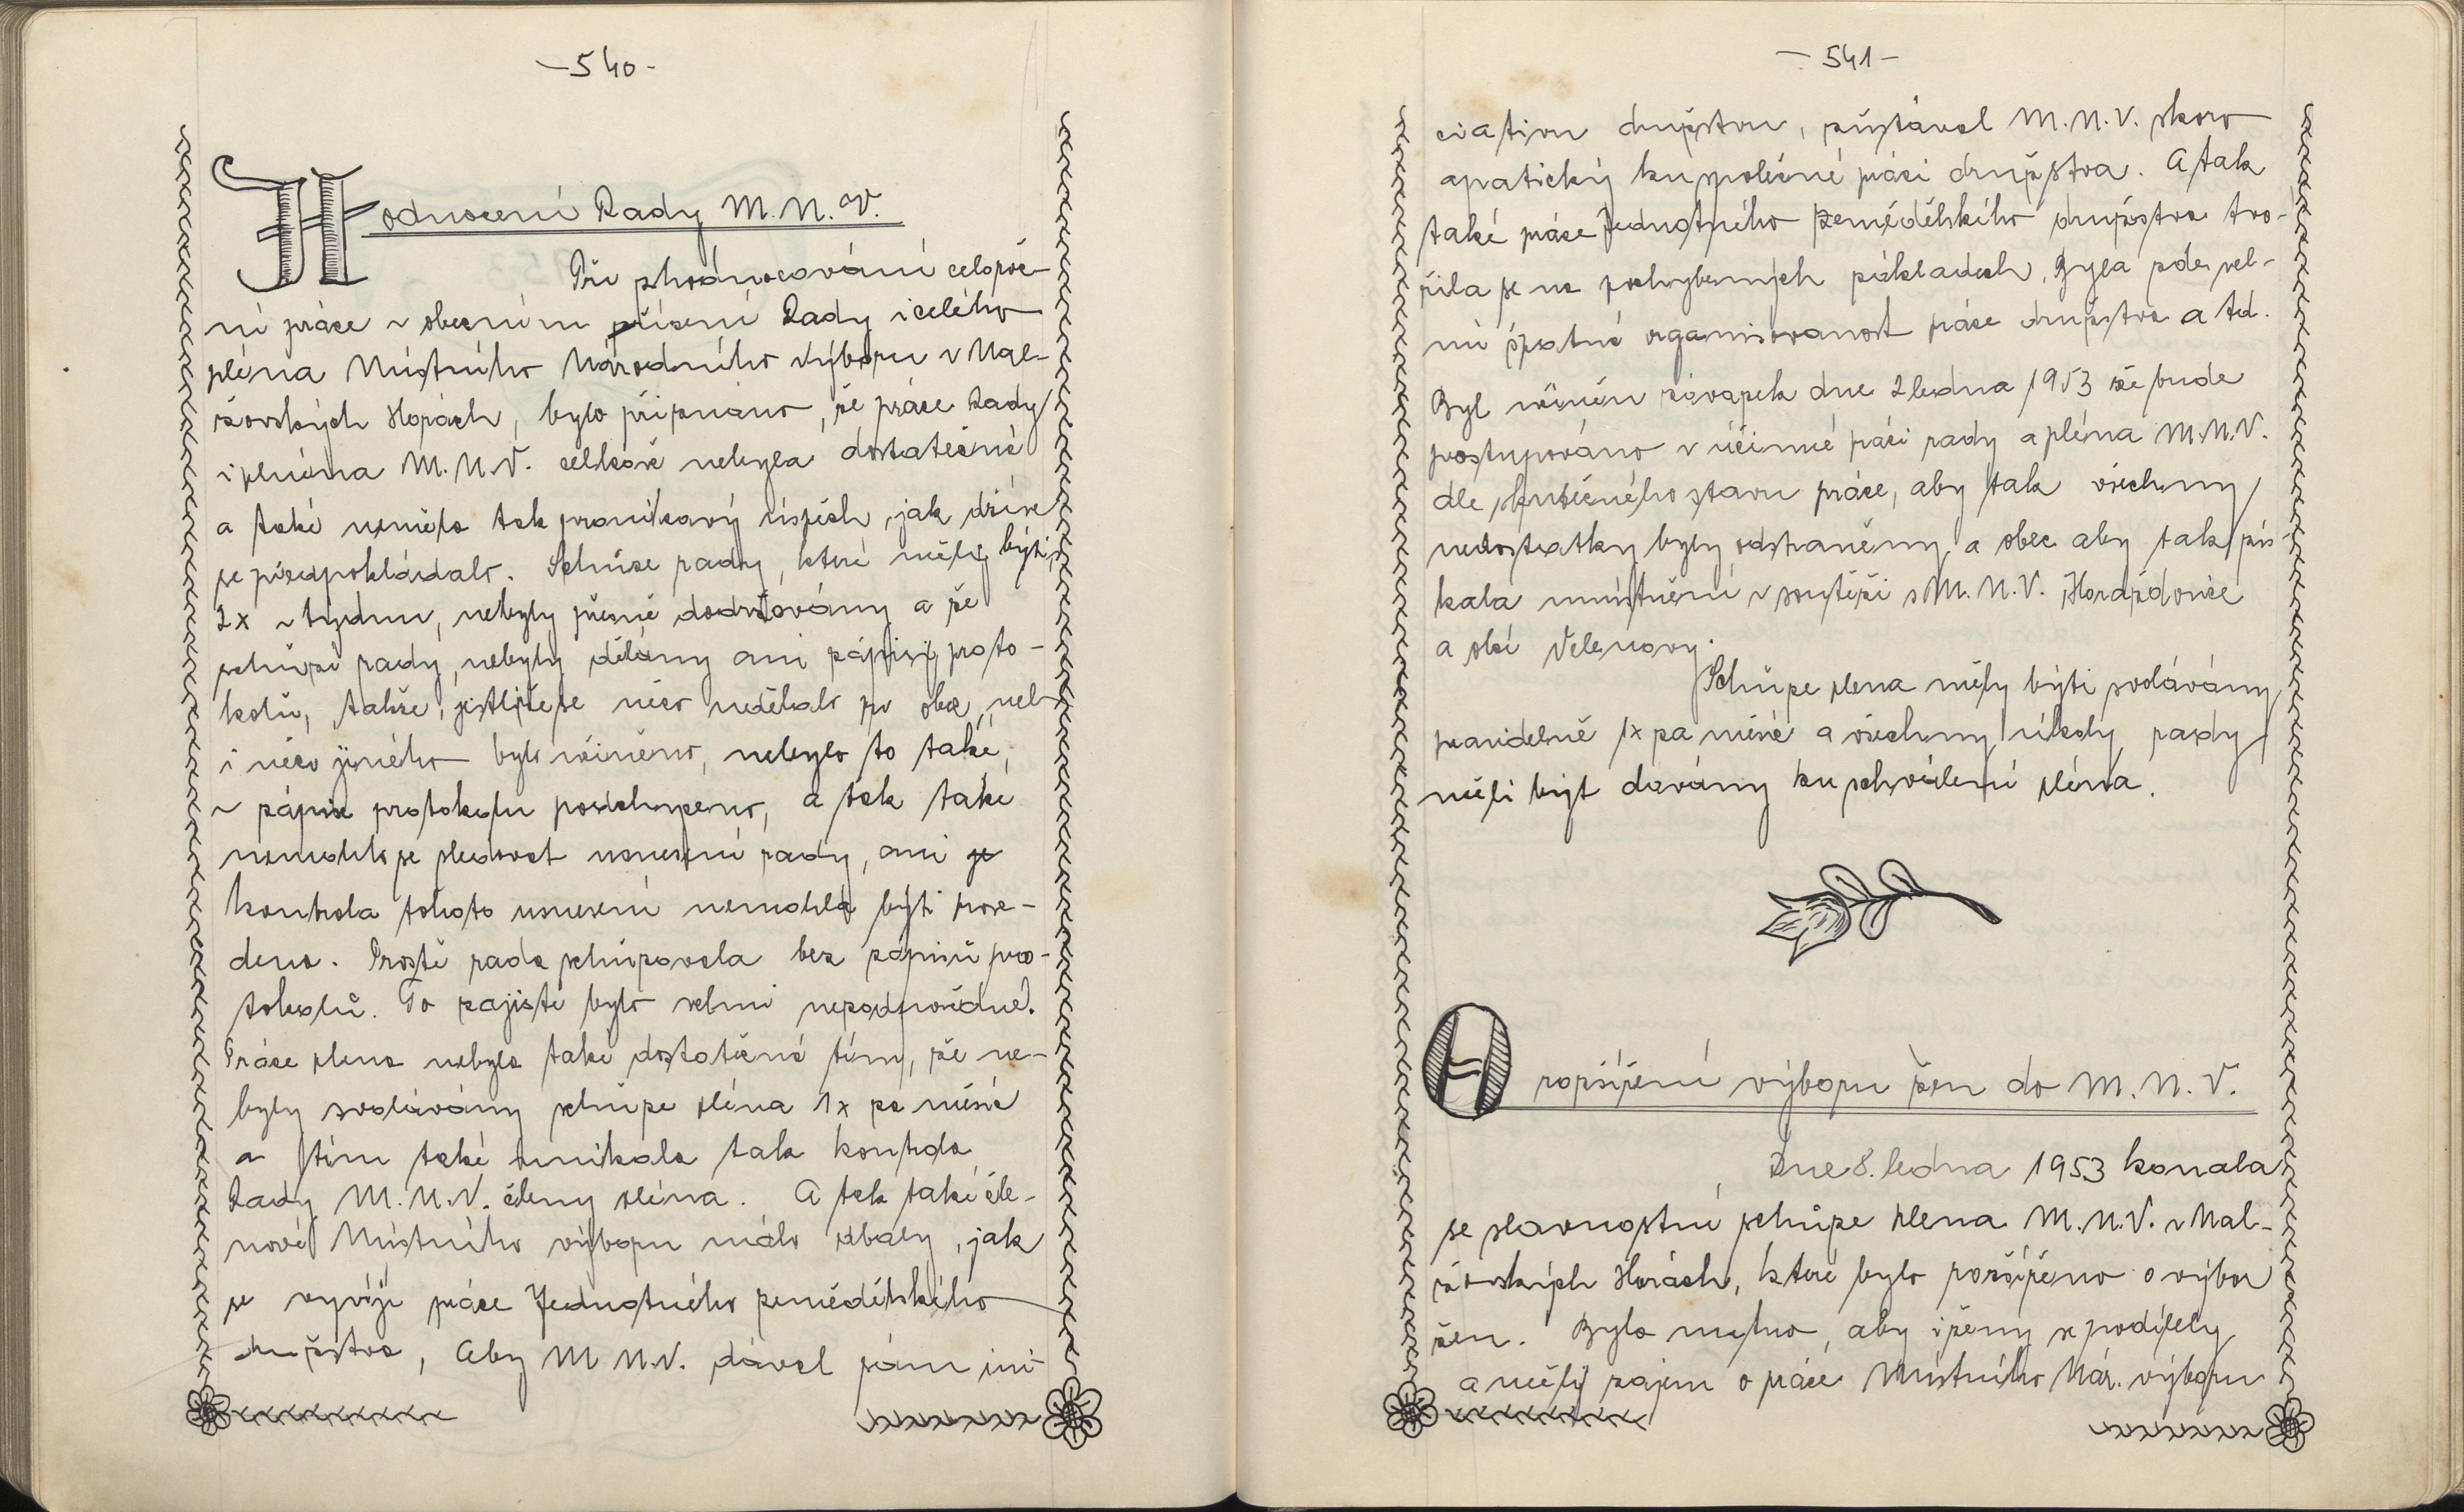 -540-
Hodnocení Rady M.N.V.
Při zhodnocování celoroč-
ní práce v obecním řízení Rady i celého
pléna Místního Národního Výboru v Mal-
žovských Horách, bylo přiznáno, že práce Rady
i pléna M.N.V. celkově nebyla dostatečná
a také neměla tak pronikavý úspěch, jak dříve
se předpokládalo. Schůze rady, které měly býti
2x v týdnu, nebyly přesně dodržovány a ze
schůzí rady, nebyly dělány ani zápisy proto-
kolů, takže, jestliže se něco udělalo po obci, neb
i něco jiného bylo učiněno, nebylo to také,
v zápise protokolu podchyceno, a tak také
nemohlo se sledovat usnesení rady, ani je
kontrola tohoto usnesení nemohla býti prove-
dena. Prostě rada schůzovala bez zápisů pro-
tokolů. To zajisté bylo velmi nezodpovědné.
Práce plena nebyla také dostatečná tím, že ne-
byly svolávány schůze pléna 1x za měsíc
a tím také unikala tak kontrola
Rady M.N.V. členy pléna. A tak také čle-
nové Místního výboru málo dbaly, jak
se vyvíjí práce Jednotného zemědělského
družstva, Aby M N.V. dával sám ini-
-541-
ciativu družstvu, zůstával M.N.V. skoro
apatický ku společné práci družstva. A tak
také práce Jednotného Zemědělského družstva tvo-
řila se na pochybených základech, Byla zde vel-
mi špatná organisovanost práce družstva a td.
Byl učiněn závazek dne 2 ledna 1953 že bude
postupováno v účinné práci rady a pléna M.N.V.
dle skutečného stavu práce, aby tak všechny
nedostatky byly odstraněny a obec aby tak zís-
kala umístnění v soutěži s M.N.V. Horažďovice
a obcí Velenovy.
Schůze plena měly býti svolávány
pravidelně 1x za měsíc a všechny úkoly rady
měli být dávány ku schválení pléna.
O rozšíření výboru žen do M.N.V.
Dne 8. ledna 1953 konala
se slavnostní schůze plena M.N.V. v Mal-
žovských Horách, které bylo rozšířeno o výbor
žen. Bylo nutno, aby i ženy se podílely
a měly zájem o práci Místního Nár. výboru